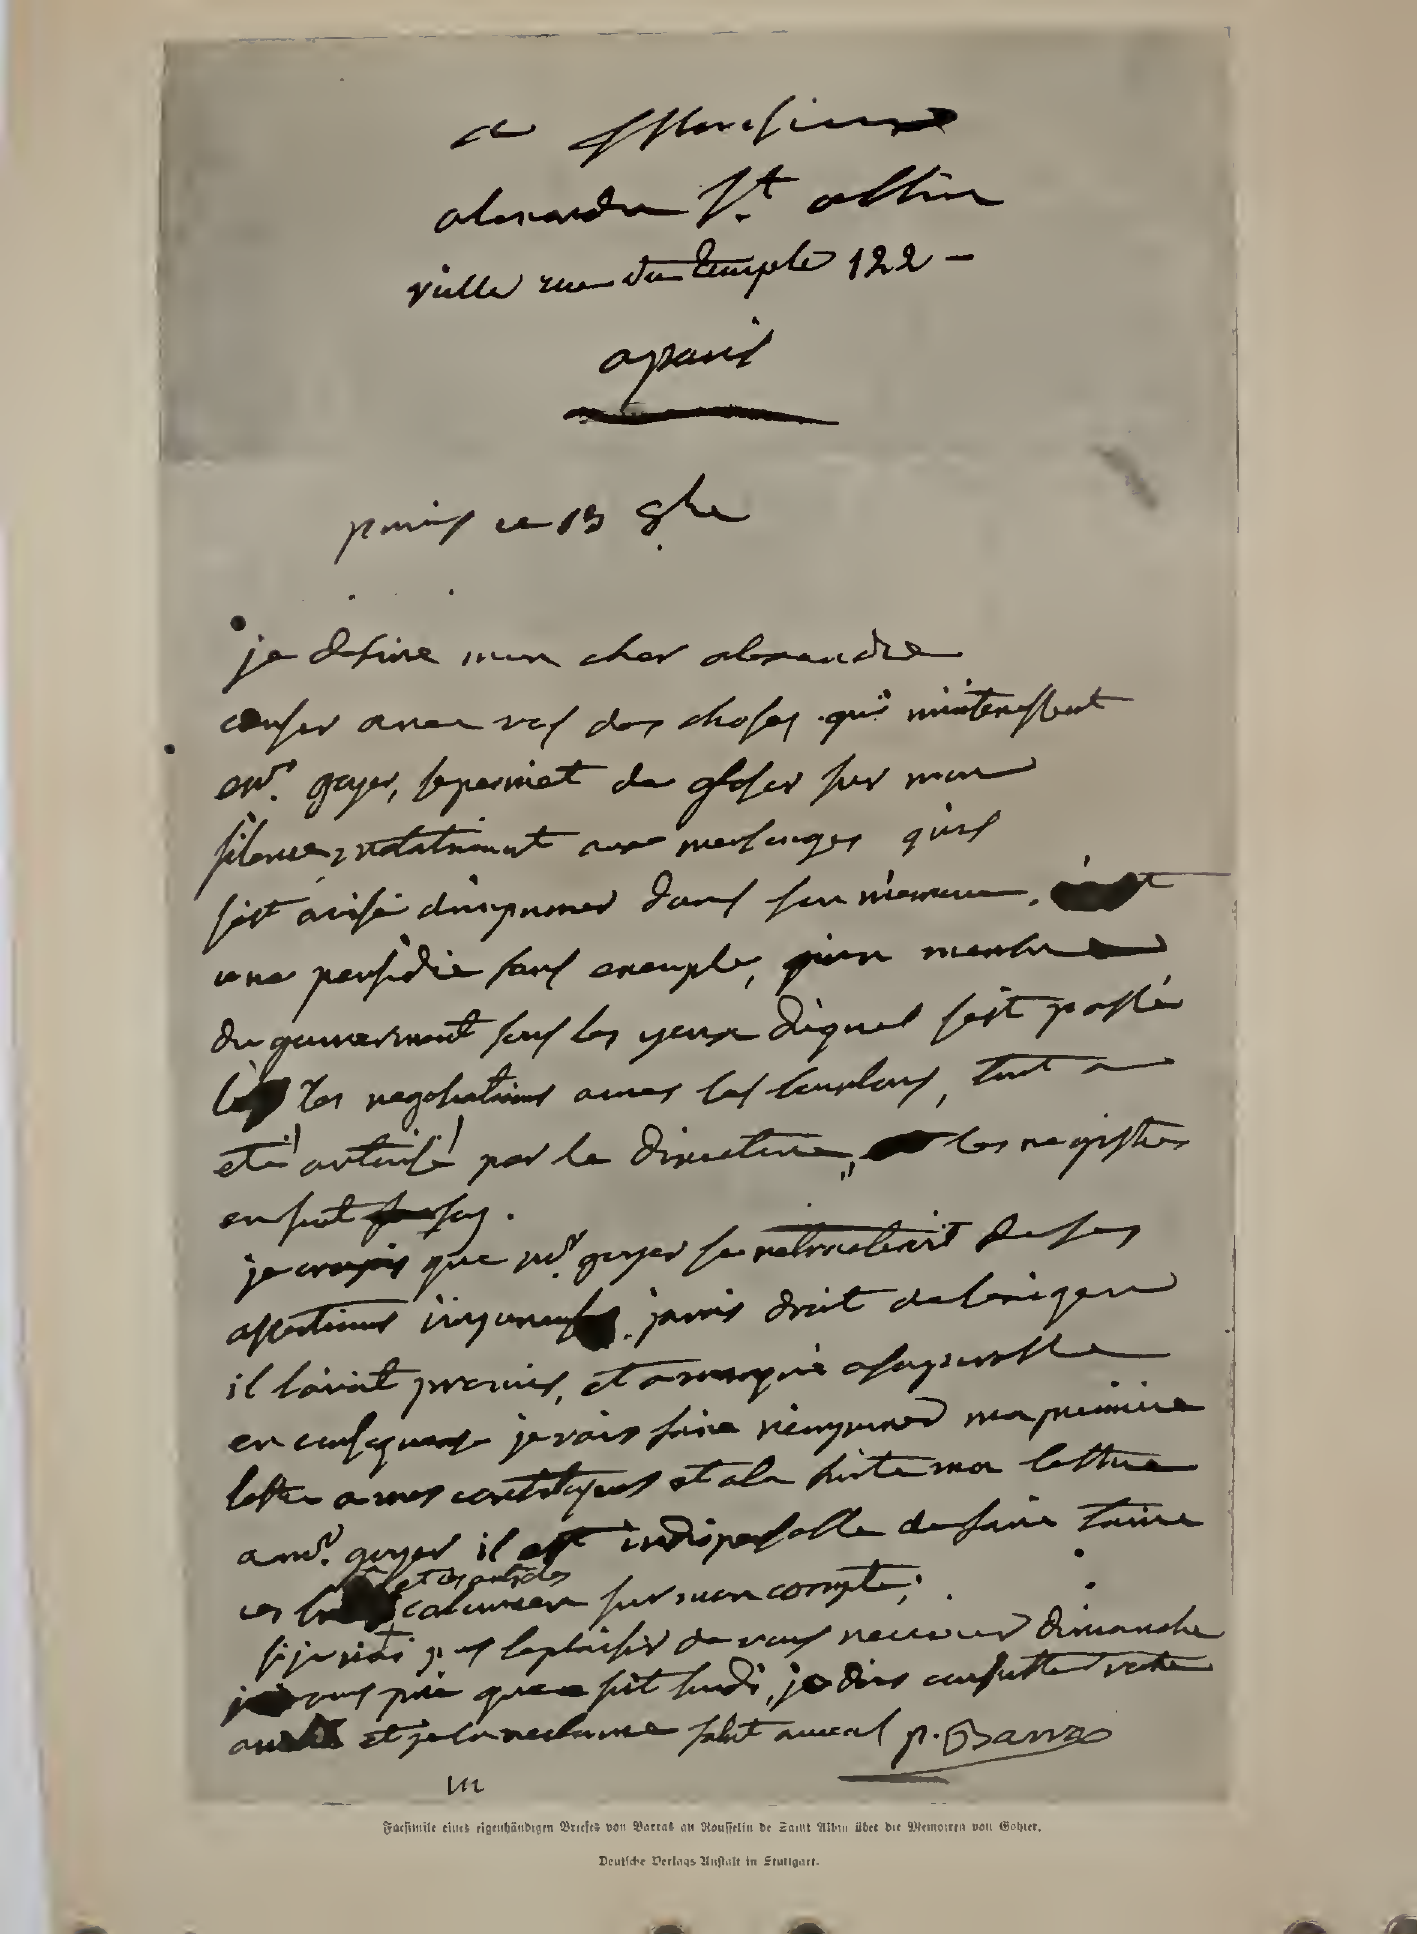 a Monsieur
alexandre St. albin
vielle rue du temple 122 —
a paris
paris ce 13 8bre
je desire mon cher alexandre
causer avec vous des choses qui m'interessent
mr. goyer, se permet de gloser sur mon
silence, relativement aux mensonges qu'il
s'est avisé d'imprimer dans son memoire. c'est
une perfidie sans exemple, qu'un membre
du gouvernement sous les yeux duquel s'est passée
les negotiations avec les bourbons, tout a
eté autorisé par le directoire, les registres
en font foy.
je croyois que mr. goyer se retracteroit de ses
assertions j'avois droit de l'exiger
il l'avoit promis, et a manqué a sa parolle
en consequence je vais faire reimprimer ma premiere
lettre a mes et a la suite ma lettre
a mr. goyer il est indispensable de faire taire
et ces articles
ces sur mon compte;
si je n'ai pas le plaisir de vous recevoir dimanche
je vous prie que ce soit lundi, je dois consulter votre
et je la reclame salut amical p. Barras
Facsimile eines eigenhändigen Briefes von Barras an Rousselin de Saint Albin über die Memoiren von Gohier.
Deutsche Verlags-Anstalt in Stuttgart.